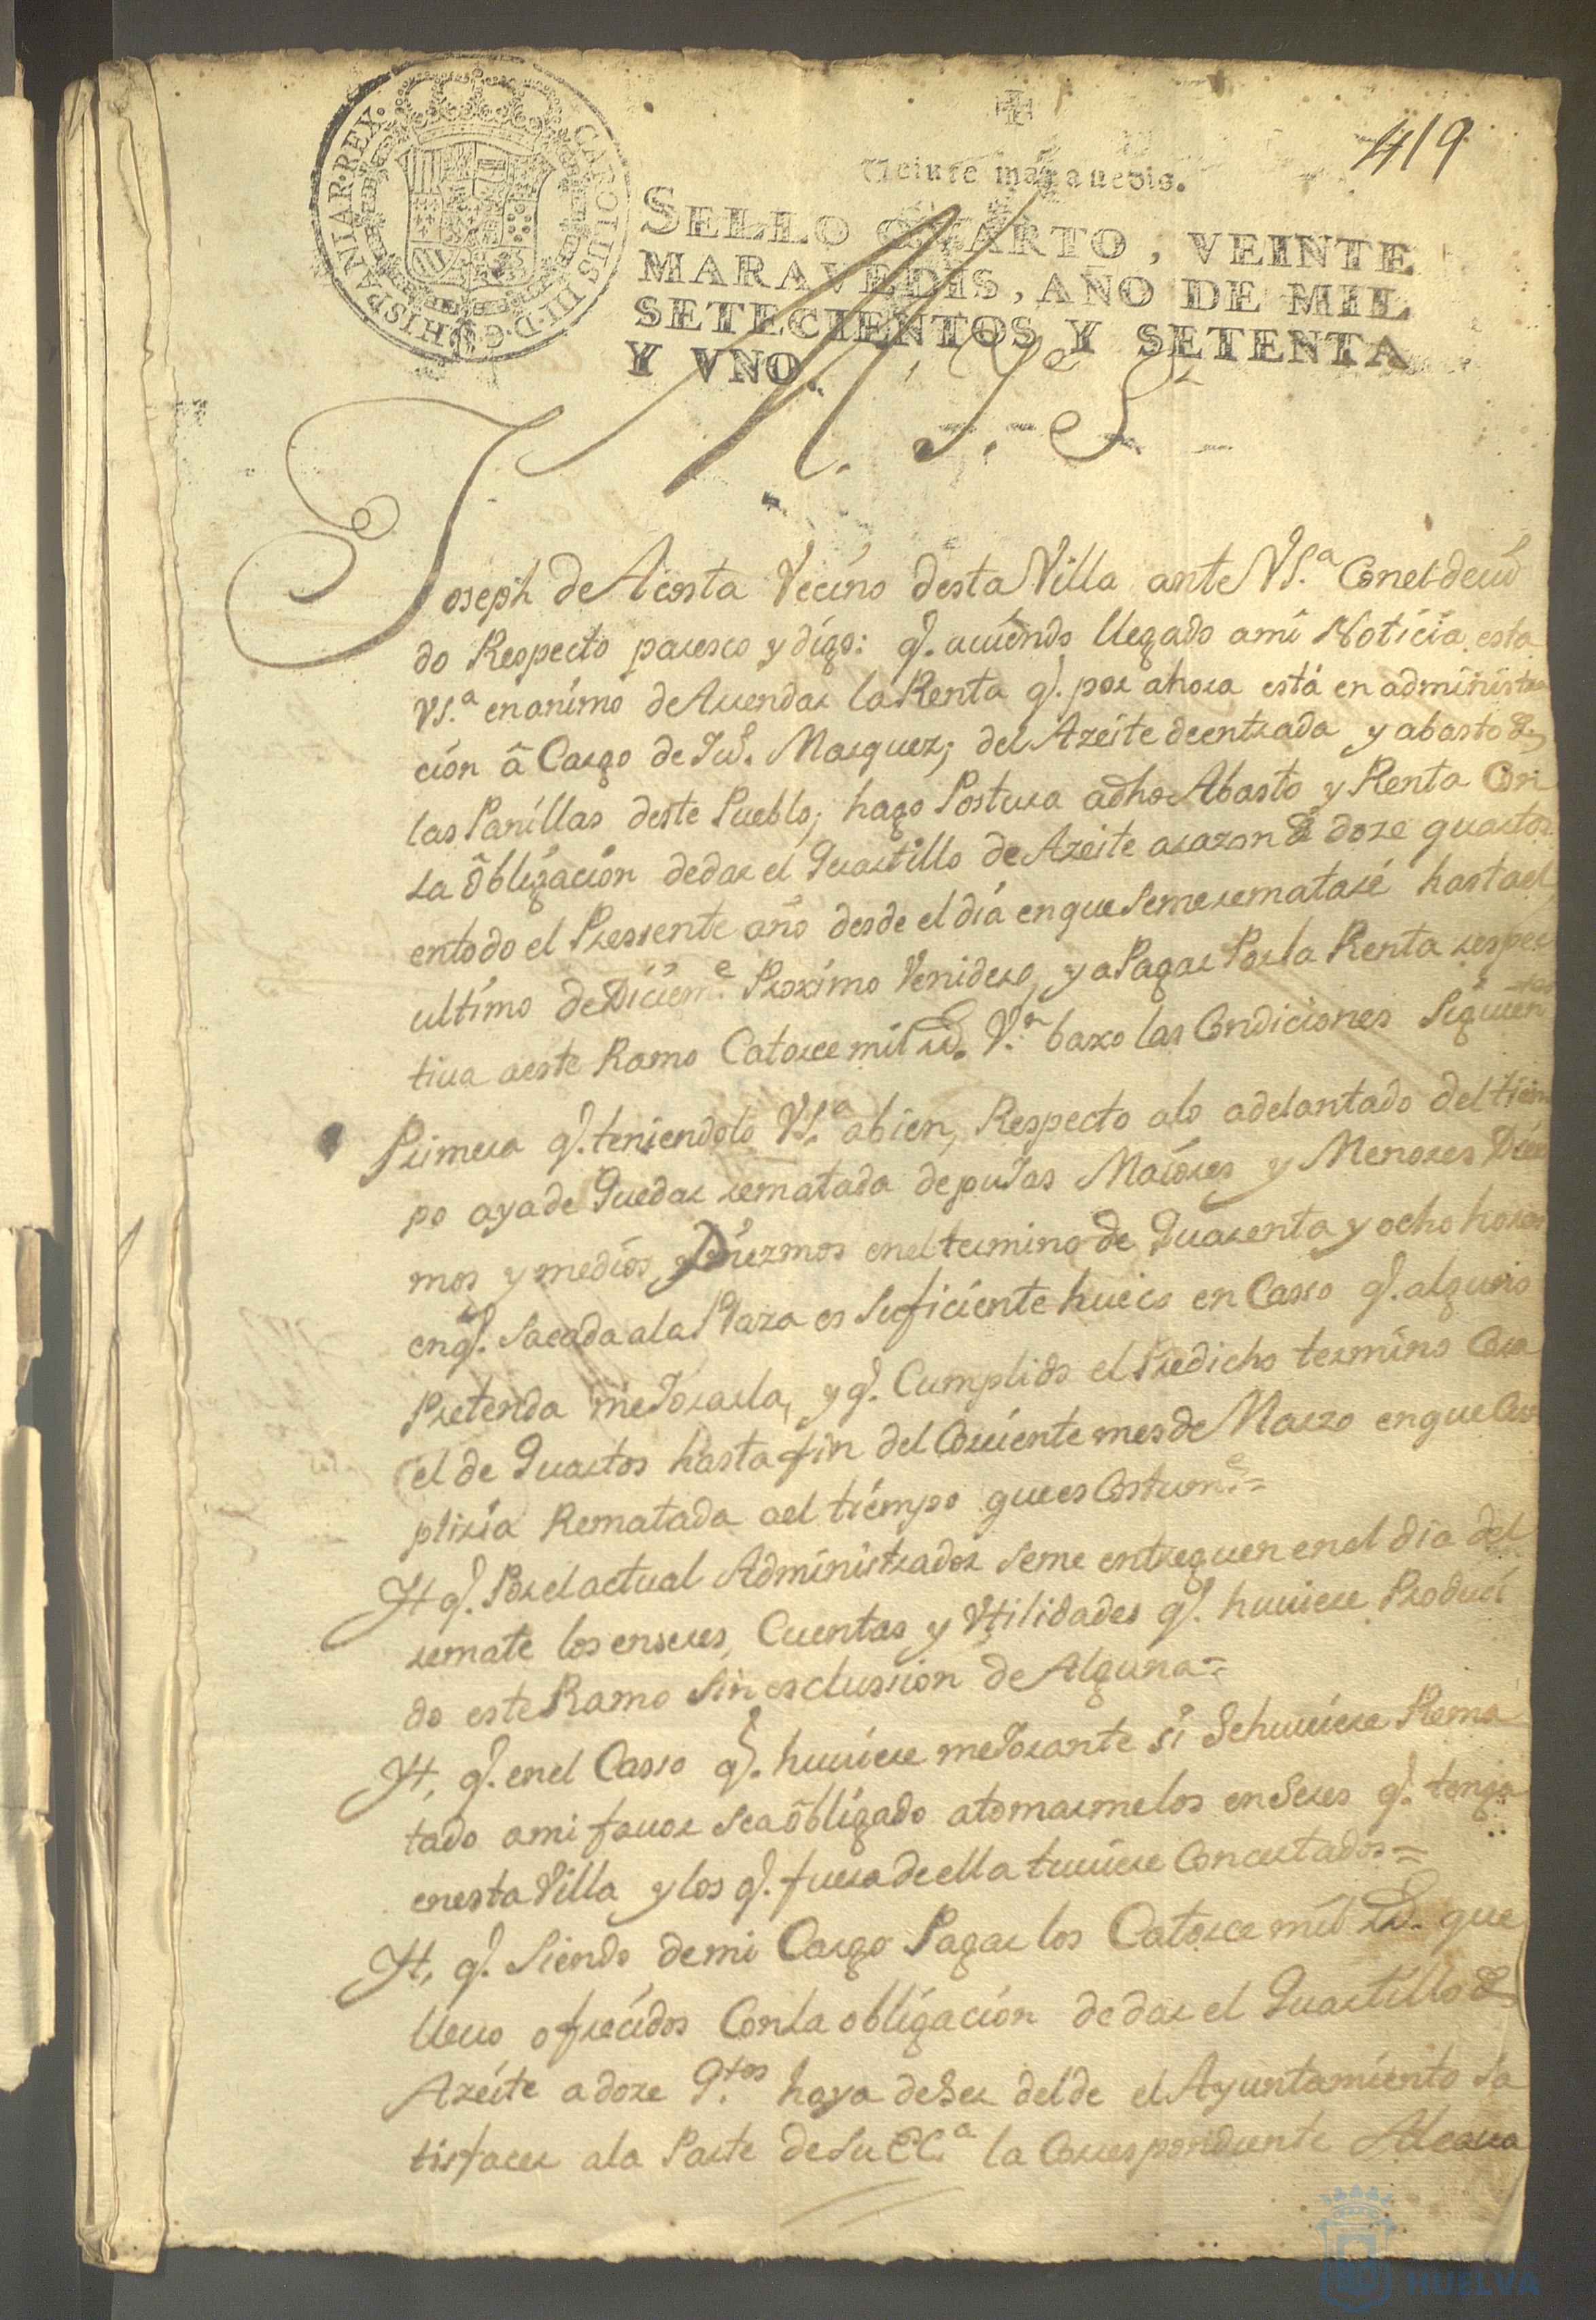 419
CAROLUS III D. G. HISPANIAR. REX.
Veinte maravedis.
SELLO QVARTO, VEINTE
MARAVEDIS, AÑO DE MIL
SETECIENTOS Y SETENTA
Y VNO.
Joseph de Acosta Vecino desta Villa ante VS.ª Con el deui
do Respecto paresco y digo: q.e auiendo llegado a mi Noticia, esta
VS.ª en animo de Arrendar la Renta q.e por ahora está en administra
ción â Cargo de Marquez; del Azeite de entrada y abasto de
las Panillas deste Pueblo; hago Postura a dho Abasto y Renta Con
la ôbligación de dar el Quartillo de Azeite a razon de doze quartos
en todo el Pressente año desde el día en que se me rematare hasta el
ultimo de Diciem.e Proximo Venidero, y a Pagar Por la Renta respec
tiua a este Ramo Catorce mil rs. V.n baxo las Condiciones Siguien
tes
Primera q.e teniendolo VS.ª a bien, Respecto a lo adelantado del tiem
po aya de Quedar rematada de puJas Maiores y Menores Diez
mos y medios Diezmos en el termino de Quarenta y ocho horas
en q.e sacada a la Plaza es suficiente hueco en Casso q.e alguno
Pretenda meJorarla, y q.e Cumplido el Predicho termino Corra
el de Quartos hasta fin del Corriente mes de Marzo en que Cum
pliria Rematada a el tiempo que es Costum.e =
Yt q.e Por el actual Administrador se me entreguen en el dia del
remate los enseres, Cuentas y Vtilidades q.e huuiere Produci
do este Ramo sin esclussion de Alguna =
Yt, q.e en el Casso q.e huuiere meJorante si Se huuiere Rema
tado a mi fauor sea ôbligado a tomarme los enSeres q.e tenga
en esta Villa y los q.e fuera de ella tuuiere Concertados =
Yt, q.e Siendo de mi Cargo Pagar los Catorce mil rs. que
lleuo ofrecidos Con la obligación de dar el Quartillo de
Azeite a doze Q.tos haya de Ser del de el Ayuntamiento sa
tisfacer a la Parte de Su EC.ª la Correspondiente Alcaua
HUELVA